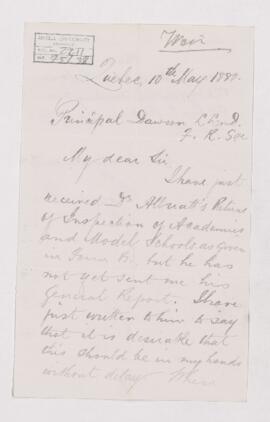 Weir
McGILL UNIVERSITY
ACC. NO. 2211
REF.
Quebec, 10th May 1880.
Principal Dawson LL.D.
F. R. S &c
My dear Sir
I have just
received Dr Allnatt's Returns
of Inspection of Academies
and Model Schools as given
in Form B, but he has
not yet sent me his
General Report. I have
just written to him to say
that it is desirable that
this should be in my hands
without delay. When